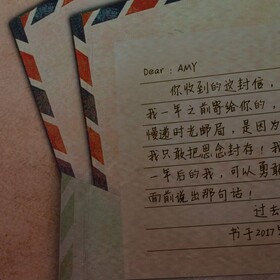 Dear：AMY
你收到的这封信，
我一年之前寄给你的，
慢递时光邮局，是因为
我只敢把思念封存！我
一年后的我，可以勇敢
面前说出那句话！
过去
书于2017